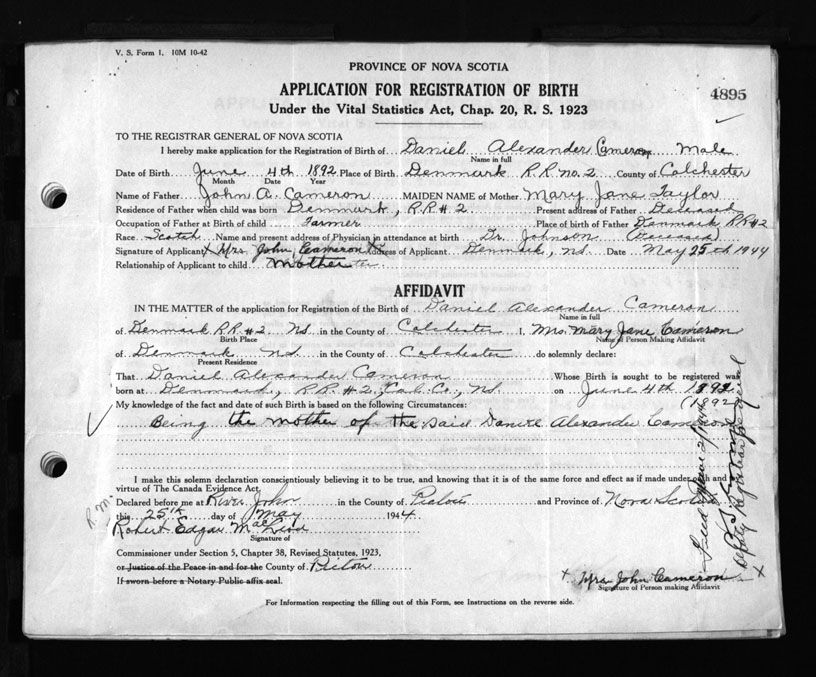 V. S. Form 1. 10M 10-42
PROVINCE OF NOVA SCOTIA
APPLICATION FOR REGISTRATION OF BIRTH
4895
Under the Vital Statistics Act, Chap. 20, R. S. 1923
TO THE REGISTRAR GENERAL OF NOVA SCOTIA
I hereby make application for the Registration of Birth of Daniel Alexander Cameron Male
Name in full
Date of Birth June 4th 1892 Place of Birth Denmark R.R. no. 2 County of Colchester
Month Date Year
Name of Father John A. Cameron MAIDEN NAME of Mother Mary Jane Taylor
Residence of Father when child was born Denmark, R.R. # 2 Present address of Father Deceased
Occupation of Father at Birth of child Farmer Place of birth of Father Denmark RR#2
Race Scotch Name and present address of Physician in attendance at birth Dr. Johnson (Deceased)
Signature of Applicant x Mrs John Cameron Address of Applicant Denmark, N.S. Date May 25th 1944
Relationship of Applicant to child Mother
AFFIDAVIT
IN THE MATTER of the application for Registration of the Birth of Daniel Alexander Cameron
Name in full
of Denmark R.R. # 2 N.S. in the County of Colchester I, Mrs. Mary Jane Cameron
Birth Place Name of Person Making Affidavit
of Denmark N.S. in the County of Colchester do solemnly declare:
Present Residence
That Daniel Alexander Cameron Whose Birth is sought to be registered was
born at Denmark, R.R. # 2, Col. Co., N.S. on June 4th 1892
(1892)
My knowledge of the fact and date of such Birth is based on the following Circumstances:
Being the mother of the said Daniel Alexander Cameron
I make this solemn declaration conscientiously believing it to be true, and knowing that it is of the same force and effect as if made under oath and by
virtue of The Canada Evidence Act.
Declared before me at River John in the County of Pictou and Province of Nova Scotia
R.M.
this 25th day of May 1944
Robert Edgar MacLeod
Signature of
Commissioner under Section 5, Chapter 38, Revised Statutes, 1923,
or Justice of the Peace in and for the County of Pictou
If sworn before a Notary Public affix seal.
x Mrs John Cameron x
Signature of Person making Affidavit
For Information respecting the filling out of this Form, see Instructions on the reverse side.
Deputy Registrar General